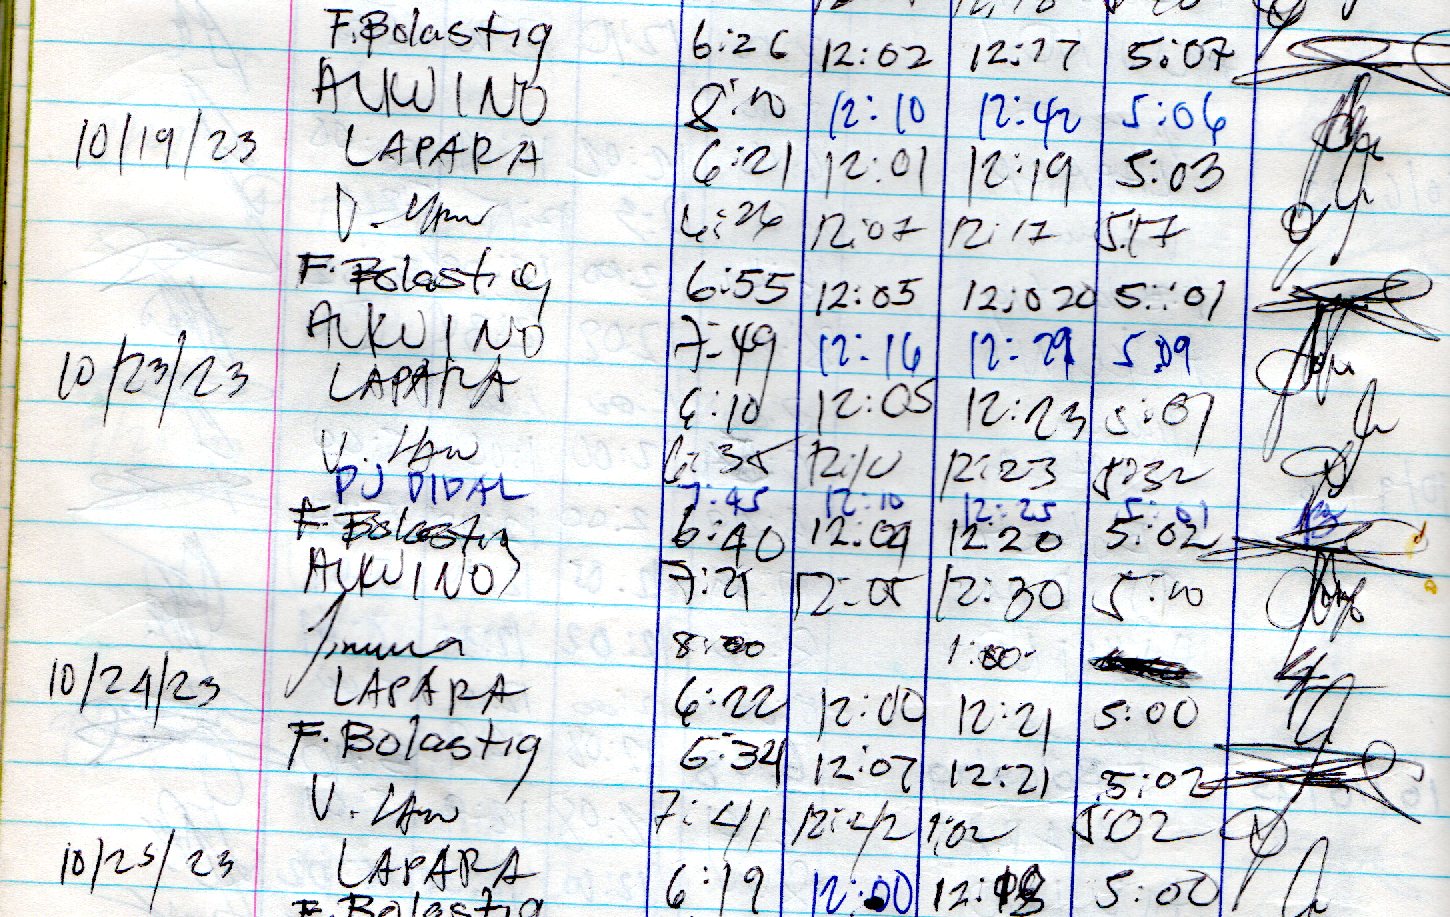 F. Bolastig 6:26 12:02 12:17 5:07
ALKUINO 8:10 12:10 12:42 5:06
10/19/23 LAPARA 6:21 12:01 12:19 5:03
12:07 12:17 5:17
F. Bolastig 6:55 12:05 12:020 5:01
ALKUINO 7:49 12:16 12:29 5:09
10/23/23 LAPARA 6:10 12:05 12:23 5:01
6:35 12:10 12:23 5:32
PJ DIDAL 7:45 12:10 12:25 5:01
F. Bolastig 6:40 12:09 12:20 5:02
ALKUINO 7:21 12:05 12:30 5:10
8:00 1:00
10/24/23 LAPARA 6:22 12:00 12:21 5:00
F. Bolastig 6:34 12:07 12:21 5:02
7:41 12:42 1:02 5:02
10/25/23 LAPARA 6:19 12:00 12:18 5:00
F. Bolastig